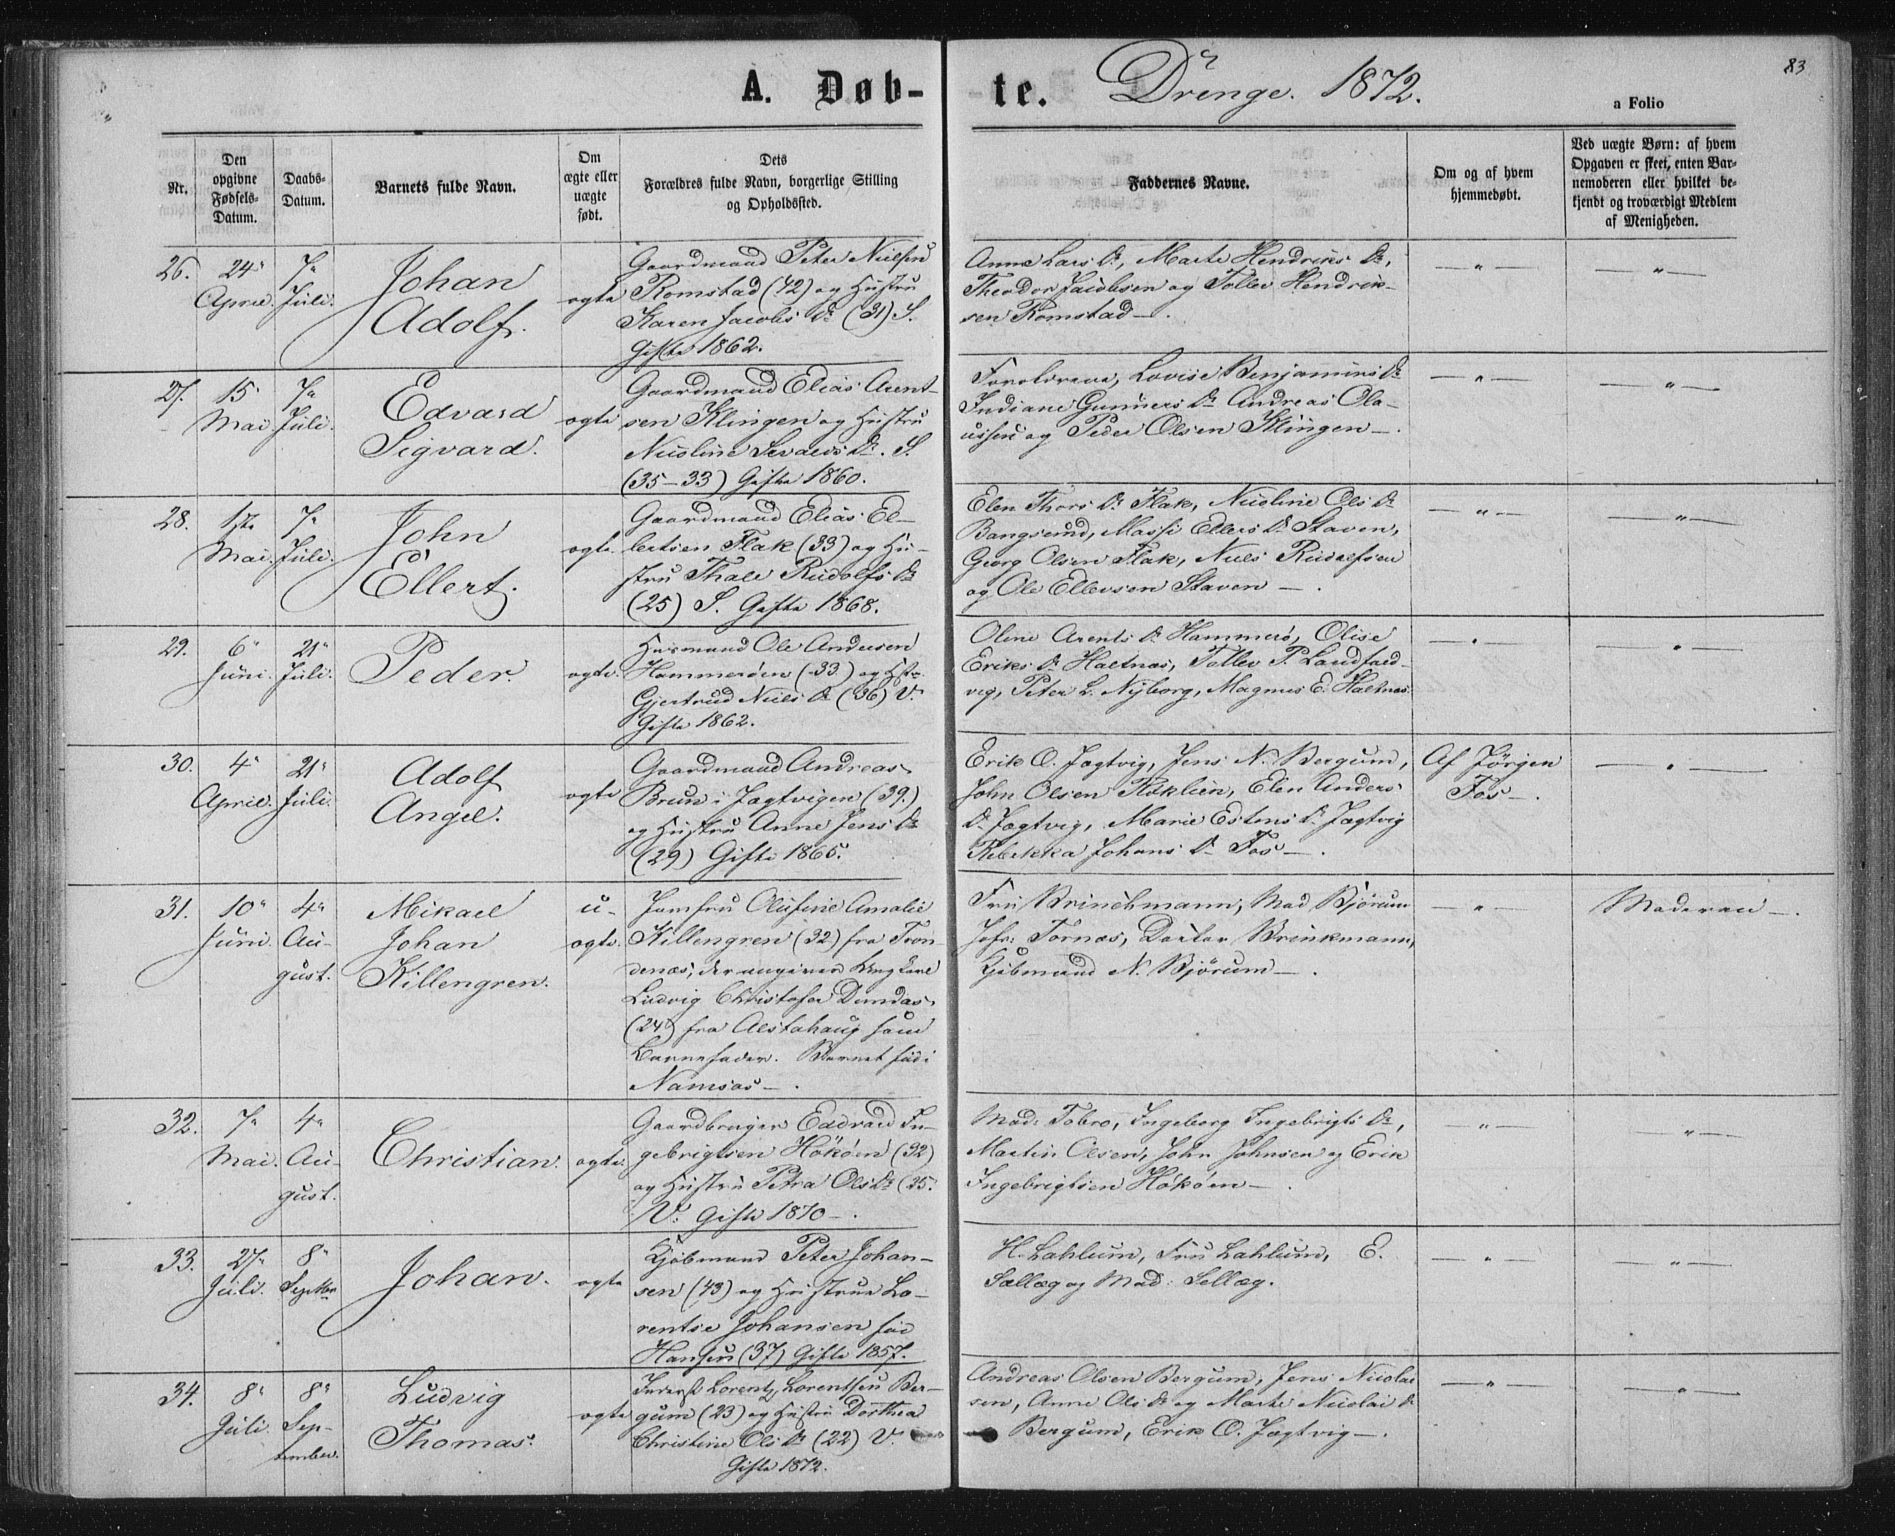 83
A. Døb-
te. Drenge. 1872.
a Folio
Nr.
Den
opgivne
Fødsels-
Datum.
Daabs-
Datum.
Barnets fulde Navn.
Om
ægte eller
uægte
født.
Dets
Forældres fulde Navn, borgerlige Stilling
og Opholdssted.
Faddernes Navne.
Om og af hvem
hjemmedøbt.
Ved uægte Børn: af hvem
Opgaven er skeet, enten Bar-
nemoderen eller hvilket be-
kjendt og troværdigt Medlem
af Menigheden.
26.
24"
April.
7"
Juli.
Johan
Adolf.
ægte
Gaardmand Peter Nielsen
Romstad (42) og Hustru
Karen Jacobs Dr (31) S.
Gifte 1862.
Anne Lars Dr, Marte Hendriks Dr,
Theodor Jacobsen og Tollev Hendrik-
sen Romstad —.
— " —
— " —
27.
15
Mai
7"
Juli.
Edvard
Sigvard.
ægte
Gaardmand Elias Arent-
sen Klingen og Hustru
Nicoline Sevalds Dr. S.
(35-33) Gifte 1860.
Forældrene, Lovise Benjamins Dr
Indiane Gunners Dr Andreas Ola-
ussen og Peder Olsen Klingen —.
— " —
— " —
28.
1ste
Mai.
7"
Juli.
John
Ellert.
ægte
Gaardmand Elias El-
lertsen Flak (33) og Hu-
stru Thale Rudolfs Dr
(25) S. Gifte 1868.
Elen Thors Dr Flak, Nicoline Ols Dr
Bangsund, Massi Ellevs Dr Staven,
Georg Olsen Flak, Niels Rudolfsen
og Ole Ellevsen Staven —.
— " —
— " —
29.
6"
Juni.
21"
Juli.
Peder.
ægte.
Husmand Ole Andersen
Hammerøen (33) og Hstr.
Gjertrud Niels Dr (36) V.
Gifte 1862.
Oline Arents Dr Hammerø, Olise
Eriks Dr Haltnæs, Tollev P. Landfald-
vig, Peter L. Nyborg, Magnus E. Haltnæs
— " —
— " —
30.
4"
April.
21"
Juli.
Adolf
Angel.
ægte
Gaardmand Andreas
Brun i Jægtvigen (39.)
og Hustru Anne Jens Dr
(29) Gifte 1865.
Erik O. Jægtvig, Jens N. Bergum,
John Olsen Røklien, Elen Anders
Dr. Jægtvig, Marie Estens Dr Jægtvig
Rebekka Johans Dr Fos —.
Af Jörgen
Fos —.
— " —
31.
10"
Juni.
4"
Au-
gust.
Mikael
Johan
Killengren.
u-
ægte.
Jomfru Olufine Amalie
Killengren (32) fra Tron-
denæs, der angiver Ungkarl
Ludvig Christofer Dundas
(24) fra Alstahaug som
Barnefader. Barnet fød i
Namsos —.
Fru Brinchmann, Mad Bjørum
Jofr: Tornæs, Doctor Brinkmann,
Kjöbmand N. Bjørum —.
— " —
Moderen —.
32.
7"
Mai.
4"
Au-
gust.
Christian.
ægte.
Gaardbruger Edvard In-
gebrigtsen Høkøen (32)
og Hustru Petra Ols Dr (25.
V. Gifte 1870 —.
Mad: Fobro, Ingeborg Ingebrigts Dr,
Martin Olsen, John Johnsen og Erik
Ingebrigtsen Høkøen —.
— " —
— " —
33.
27"
Juli.
8"
Septbr.
Johan.
ægte
Kjöbmand Peter Johan-
sen (43) og Hustrue Lo-
rentse Johansen fød
Hansen (37) Gifte 1857.
H. Lahlum, Fru Lahlum, E.
Sellæg og Mad: Sellæg.
— " —
— " —
34.
8"
Juli.
8"
Sep-
tember.
Ludvig
Thomas.
ægte
Inderst Lorentz Lorentsen Ber-
gum (23) og Hustru Dorthea
Christine Ols Dr (22) V.
Gifte 1872.
Andreas Olsen Bergum, Jens Nicolai
sen, Anne Ols Dr og Marte Nicolai Dr
Bergum, Erik O. Jægtvig —.
— " —
— " —